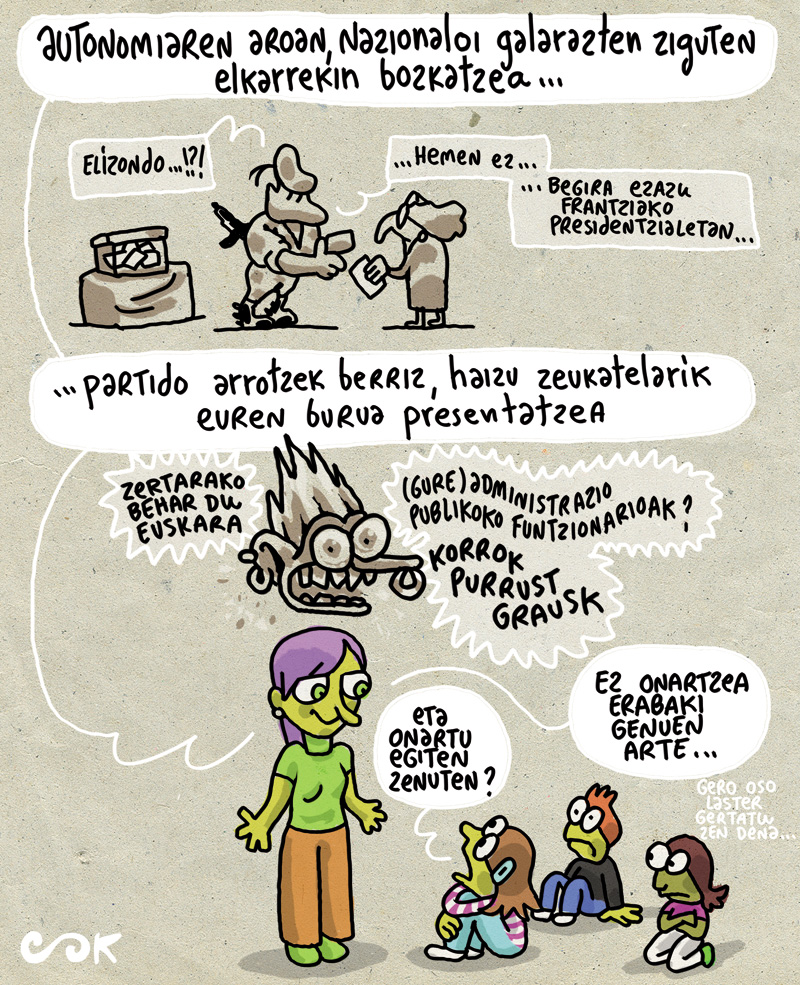 AUTONOMIAREN AROAN, NAZIONALOI GALARAZTEN ZIGUTEN
ELKARREKIN BOZKATZEA...
ELIZONDO...!?!
...HEMEN EZ...
...BEGIRA EZAZU
FRANTZIAKO
PRESIDENTZIALETAN...
...PARTIDO ARROTZEK BERRIZ, HAIZU ZEUKATELARIK
EUREN BURUA PRESENTATZEA
ZERTARAKO
BEHAR DU
EUSKARA
(GURE) ADMINISTRAZIO
PUBLIKOKO FUNTZIONARIOAK?
KORROK
PURRUST
GRAUSK
ETA
ONARTU
EGITEN
ZENUTEN?
EZ ONARTZEA
ERABAKI
GENUEN
ARTE...
GERO OSO
LASTER
GERTATU
ZEN DENA...